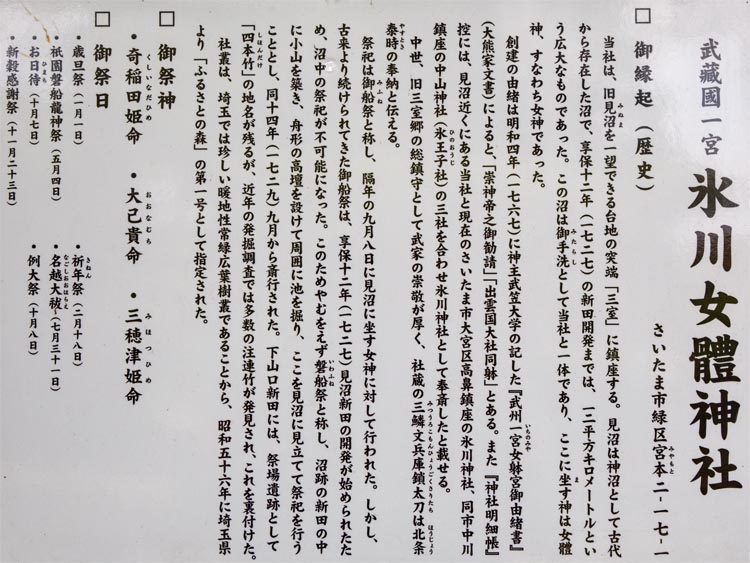 武蔵國一宮
氷川女體神社
さいたま市緑区宮本二-一七-一
みやもと
□ 御縁起(歴史)
当社は、旧見沼を一望できる台地の突端「三室」に鎮座する。見沼は神沼として古代
みぬま
から存在した沼で、享保十二年(一七二七)の新田開発までは、一二平方キロメートルとい
う広大なものであった。この沼は御手洗として当社と一体であり、ここに坐す神は女體
みたらし
ま
神、すなわち女神であった。
創建の由緒は明和四年(一七六七)に神主武笠大学の記した『武州一宮女躰宮御由緒書』
いちのみや
(大熊家文書)によると、「崇神帝之御勧請」「出雲国大社同躰」とある。また『神社明細帳』
控には、見沼近くにある当社と現在のさいたま市大宮区高鼻鎮座の氷川神社、同市中川
鎮座の中山神社(氷王子社)の三社を合わせ氷川神社として奉斎したと載せる。
ひのおうじ
中世、旧三室郷の総鎮守として武家の崇敬が厚く、社蔵の三鱗文兵庫鎖太刀は北条
みつうろこもんひょうごくさりたち
ほうじょう
泰時の奉納と伝える。
やすとき
祭祀は御船祭と称し、隔年の九月八日に見沼に坐す女神に対して行われた。しかし、
みふね
古来より続けられてきた御船祭は、享保十二年(一七二七)見沼新田の開発が始められたた
め、沼中の祭祀が不可能になった。このためやむをえず磐船祭と称し、沼跡の新田の中
いわふね
に小山を築き、舟形の高壇を設けて周囲に池を掘り、ここを見沼に見立てて祭祀を行う
こととし、同十四年(一七二九)九月から斎行された。下山口新田には、祭場遺跡として
「四本竹」の地名が残るが、近年の発掘調査では多数の注連竹が発見され、これを裏付けた。
しほんだけ
社叢は、埼玉では珍しい暖地性常緑広葉樹叢であることから、昭和五十六年に埼玉県
より「ふるさとの森」の第一号として指定された。
□ 御祭神
・奇稲田姫命
くしいなだひめ
・大己貴命
おおなむち
・三穂津姫命
みほつひめ
□ 御祭日
・歳旦祭(一月一日)
・祈年祭(二月十八日)
きねん
・祇園磐船龍神祭(五月四日)
・名越大祓(七月三十一日)
なごしおおはらえ
・お日待(十月七日)
ひまち
・例大祭(十月八日)
・新穀感謝祭(十一月二十三日)